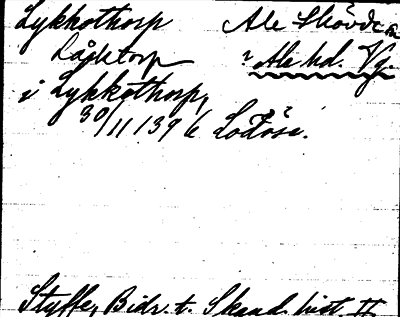 Lykkothorp Ale Skövde sn
Låstorp ? Ale hd. Vg.
i Lykkothorp,
30/11 1396 Lodose.
Styffe, Bidr. t. Skand. hist. II